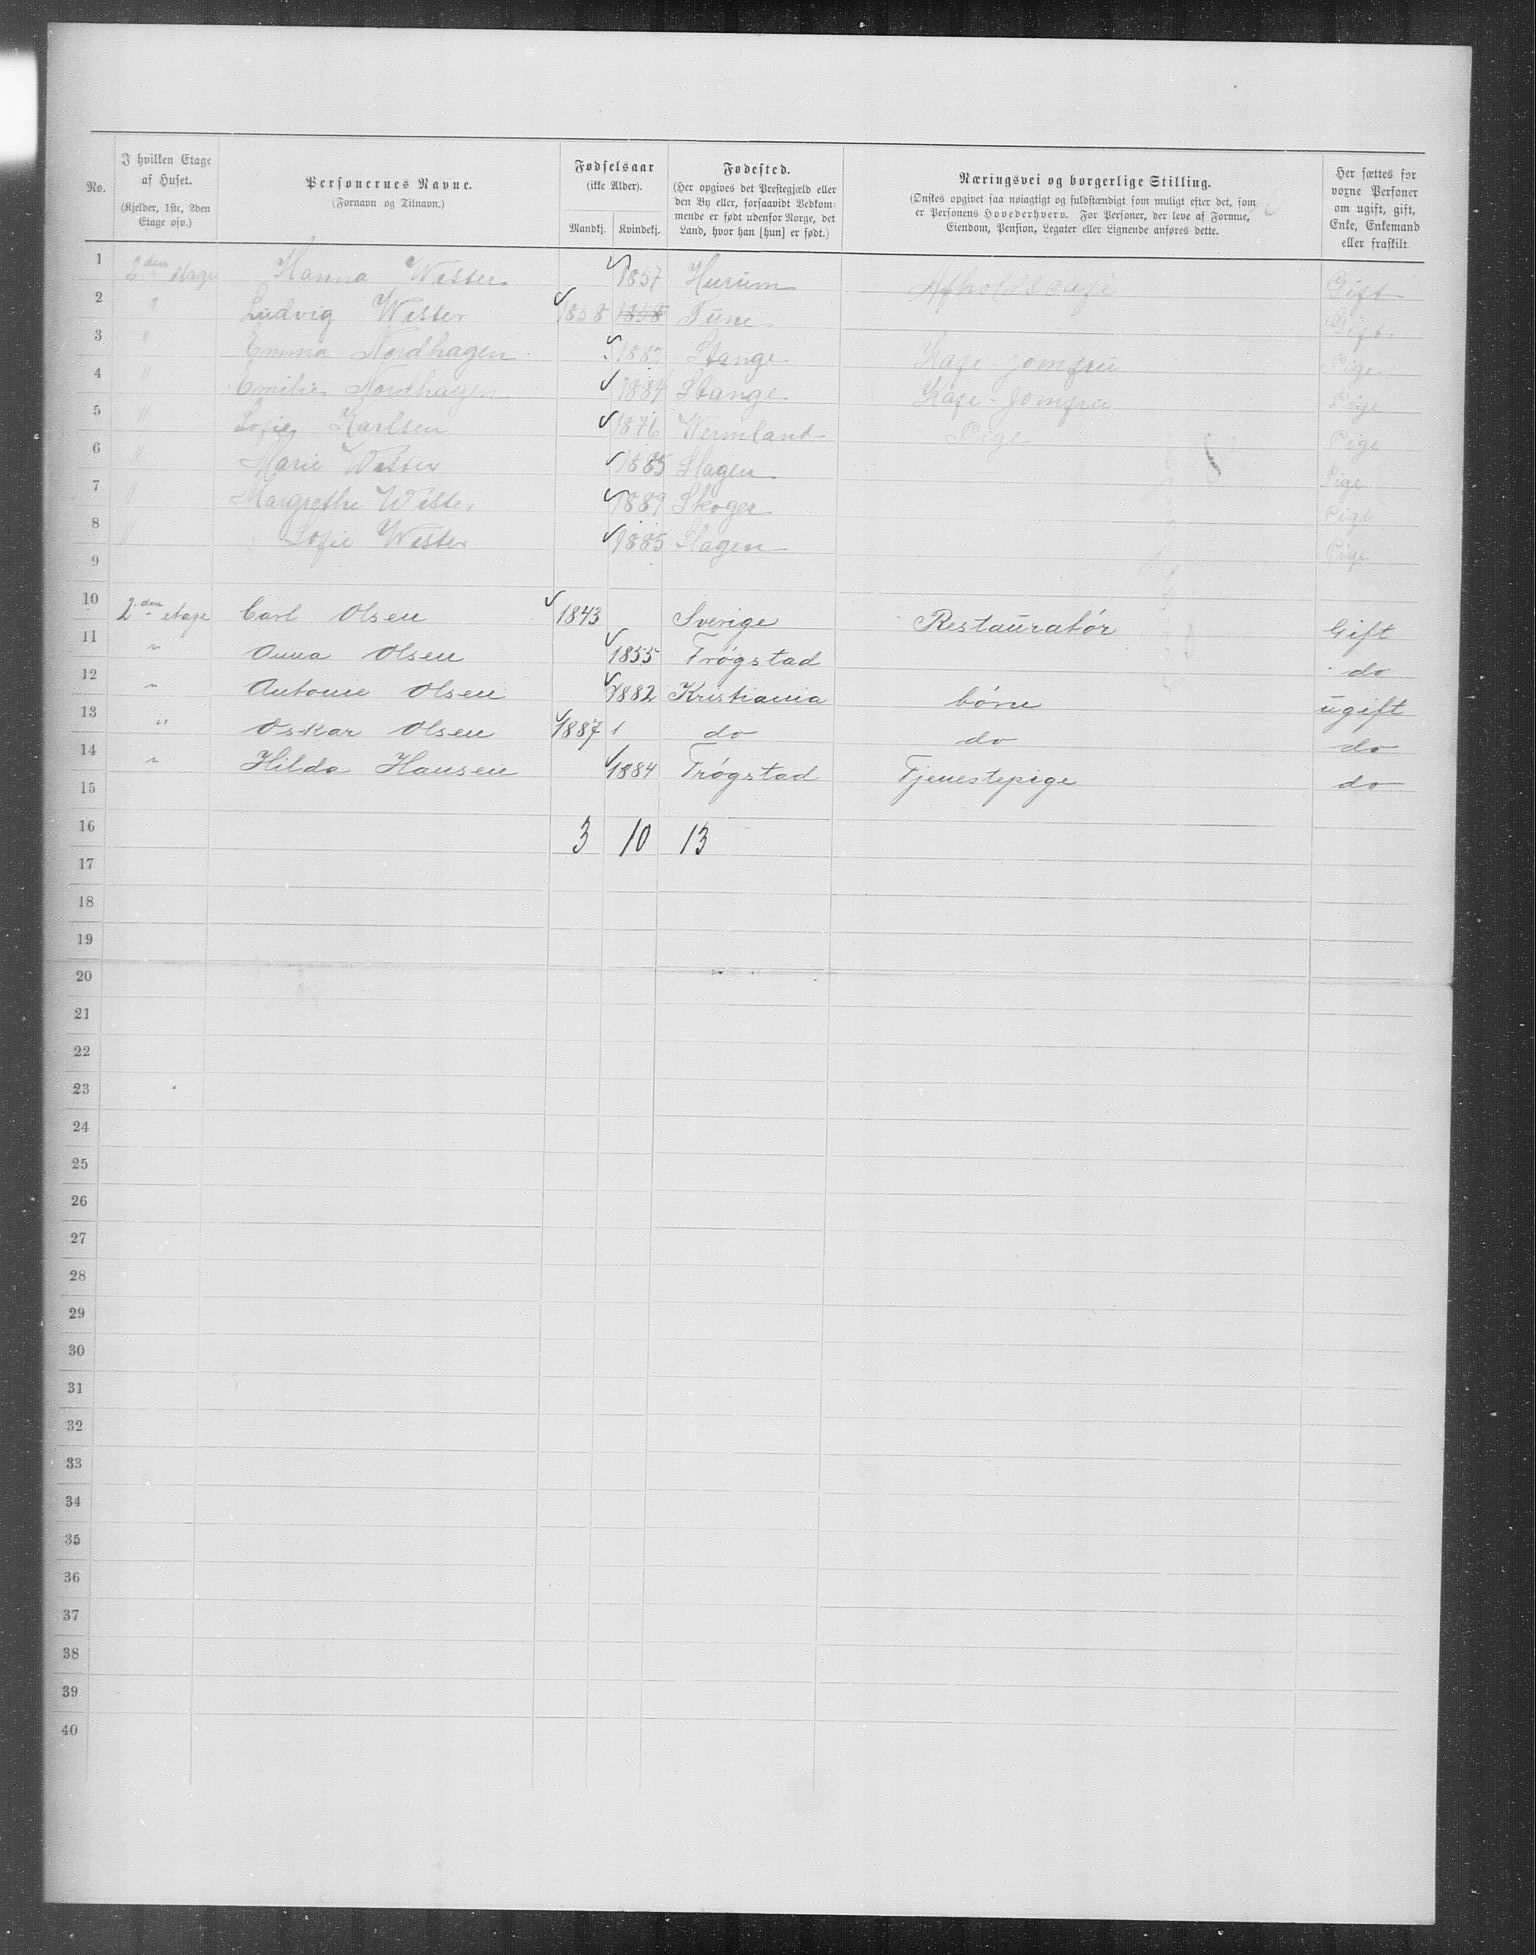 No. I hvilken Etage af Huset. (Kjelder, 1ste, 2den Etage osv.) Personernes Navne. (Fornavn og Tilnavn.) Fødselsaar (ikke Alder). Mandkj. Kvindekj. Fødested. (Her opgives det Prestegjæld eller den By eller, forsaavidt Vedkommende er født udenfor Norge, det Land, hvor han [hun] er født.) Næringsvei og borgerlige Stilling. (Ønskes opgivet saa nøiagtigt og fuldstændigt som muligt efter det, som er Personens Hovederhverv. For Personer, der leve af Formue, Eiendom, Pension, Legater eller Lignende anføres dette. Her sættes for voxne Personer om ugift, gift, Enke, Enkemand eller fraskilt
1 2den etage Hanna Wester 1857 Hurum Afholdscafe Gift
2 " Ludvig Wester 1858 1858 Tune Gift
3 " Emma Nordhagen 1882 Stange Kafe-jomfru Pige
4 " Emilie Nordhagen 1884 Stange Kafe-Jomfru Pige
5 " Sofie Karlsen 1876 Wermland Pige Pige
6 " Marie Wester 1885 Slagen Pige
7 " Margrethe Wester 1889 Skoger Pige
8 " Sofie Wester 1885 Slagen Pige
9
10 2den etage Carl Olsen 1843 Sverige Restauratør Gift
11 " Anna Olsen 1855 Trøgstad do
12 " Antonie Olsen 1882 Kristiania børn ugift
13 " Oskar Olsen 1887 1 do do do
14 " Hilda Hansen 1884 Trøgstad Tjenestepige do
15
16 3 10 13
17
18
19
20
21
22
23
24
25
26
27
28
29
30
31
32
33
34
35
36
37
38
39
40